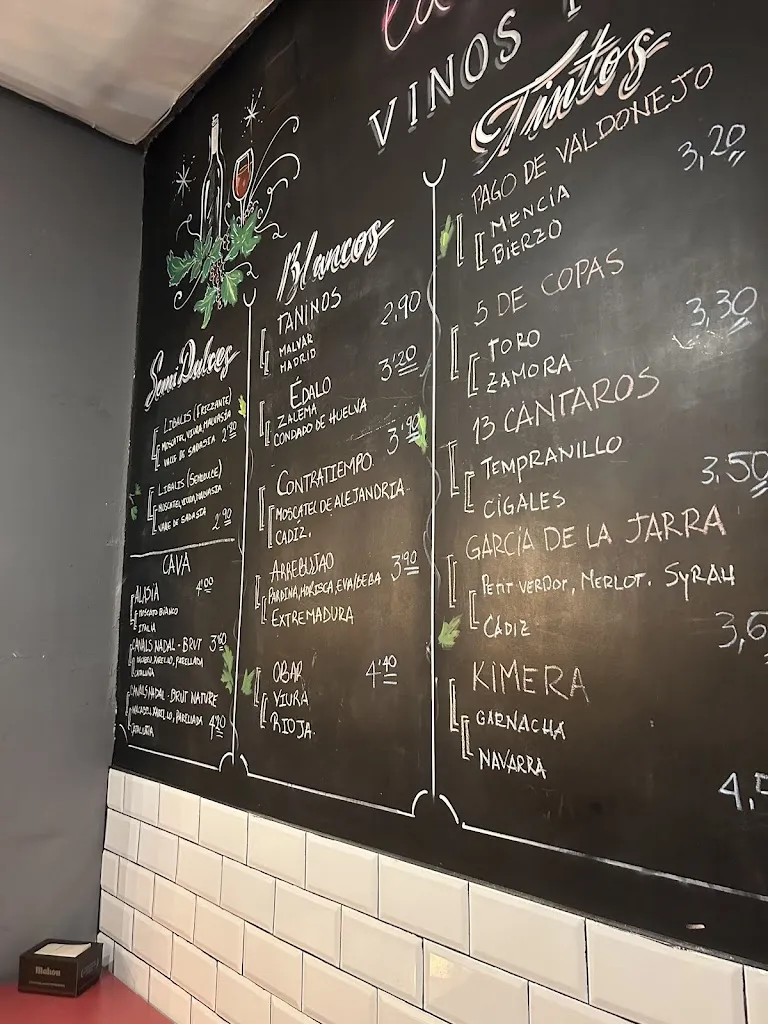 VINOS
Semi Dulces
LIBALIS (FRIZZANTE)
MOSCATEL, VIURA, MALVASIA
VALLE DE SADACIA 2'90
LIBALIS (SEMIDULCE)
MOSCATEL, VIURA, MALVASIA
VALLE DE SADACIA
2'90
CAVA
ALASIA 4'00
MOSCATO BIANCO
ITALIA
CANALS NADAL - BRUT 3'80
MACABEO, XARELLO, PARELLADA
CATALUÑA
CANALS NADAL - BRUT NATURE
MACABEO, XARELLO, PARELLADA
CATALUÑA 4'20
Blancos
TANINOS 2,90
MALVAR
MADRID
3'20
ÉDALO
ZALEMA
CONDADO DE HUELVA
3'90
CONTRATIEMPO
MOSCATEL DE ALEJANDRIA
CADIZ.
ARREBUJAO 3'90
PARDINA, MORISCA, EVA/BEBA
EXTREMADURA
OBAR 4'40
VIURA
RIOJA
Tintos
PAGO DE VALDONEJO
3,20
MENCÍA
BIERZO
5 DE COPAS
3,30
TORO
ZAMORA
13 CANTAROS
TEMPRANILLO
3,50
CIGALES
GARCÍA DE LA JARRA
PETIT VERDOT, MERLOT. SYRAH
CÁDIZ
3,6
KIMERA
GARNACHA
NAVARRA
4,5
Mahou